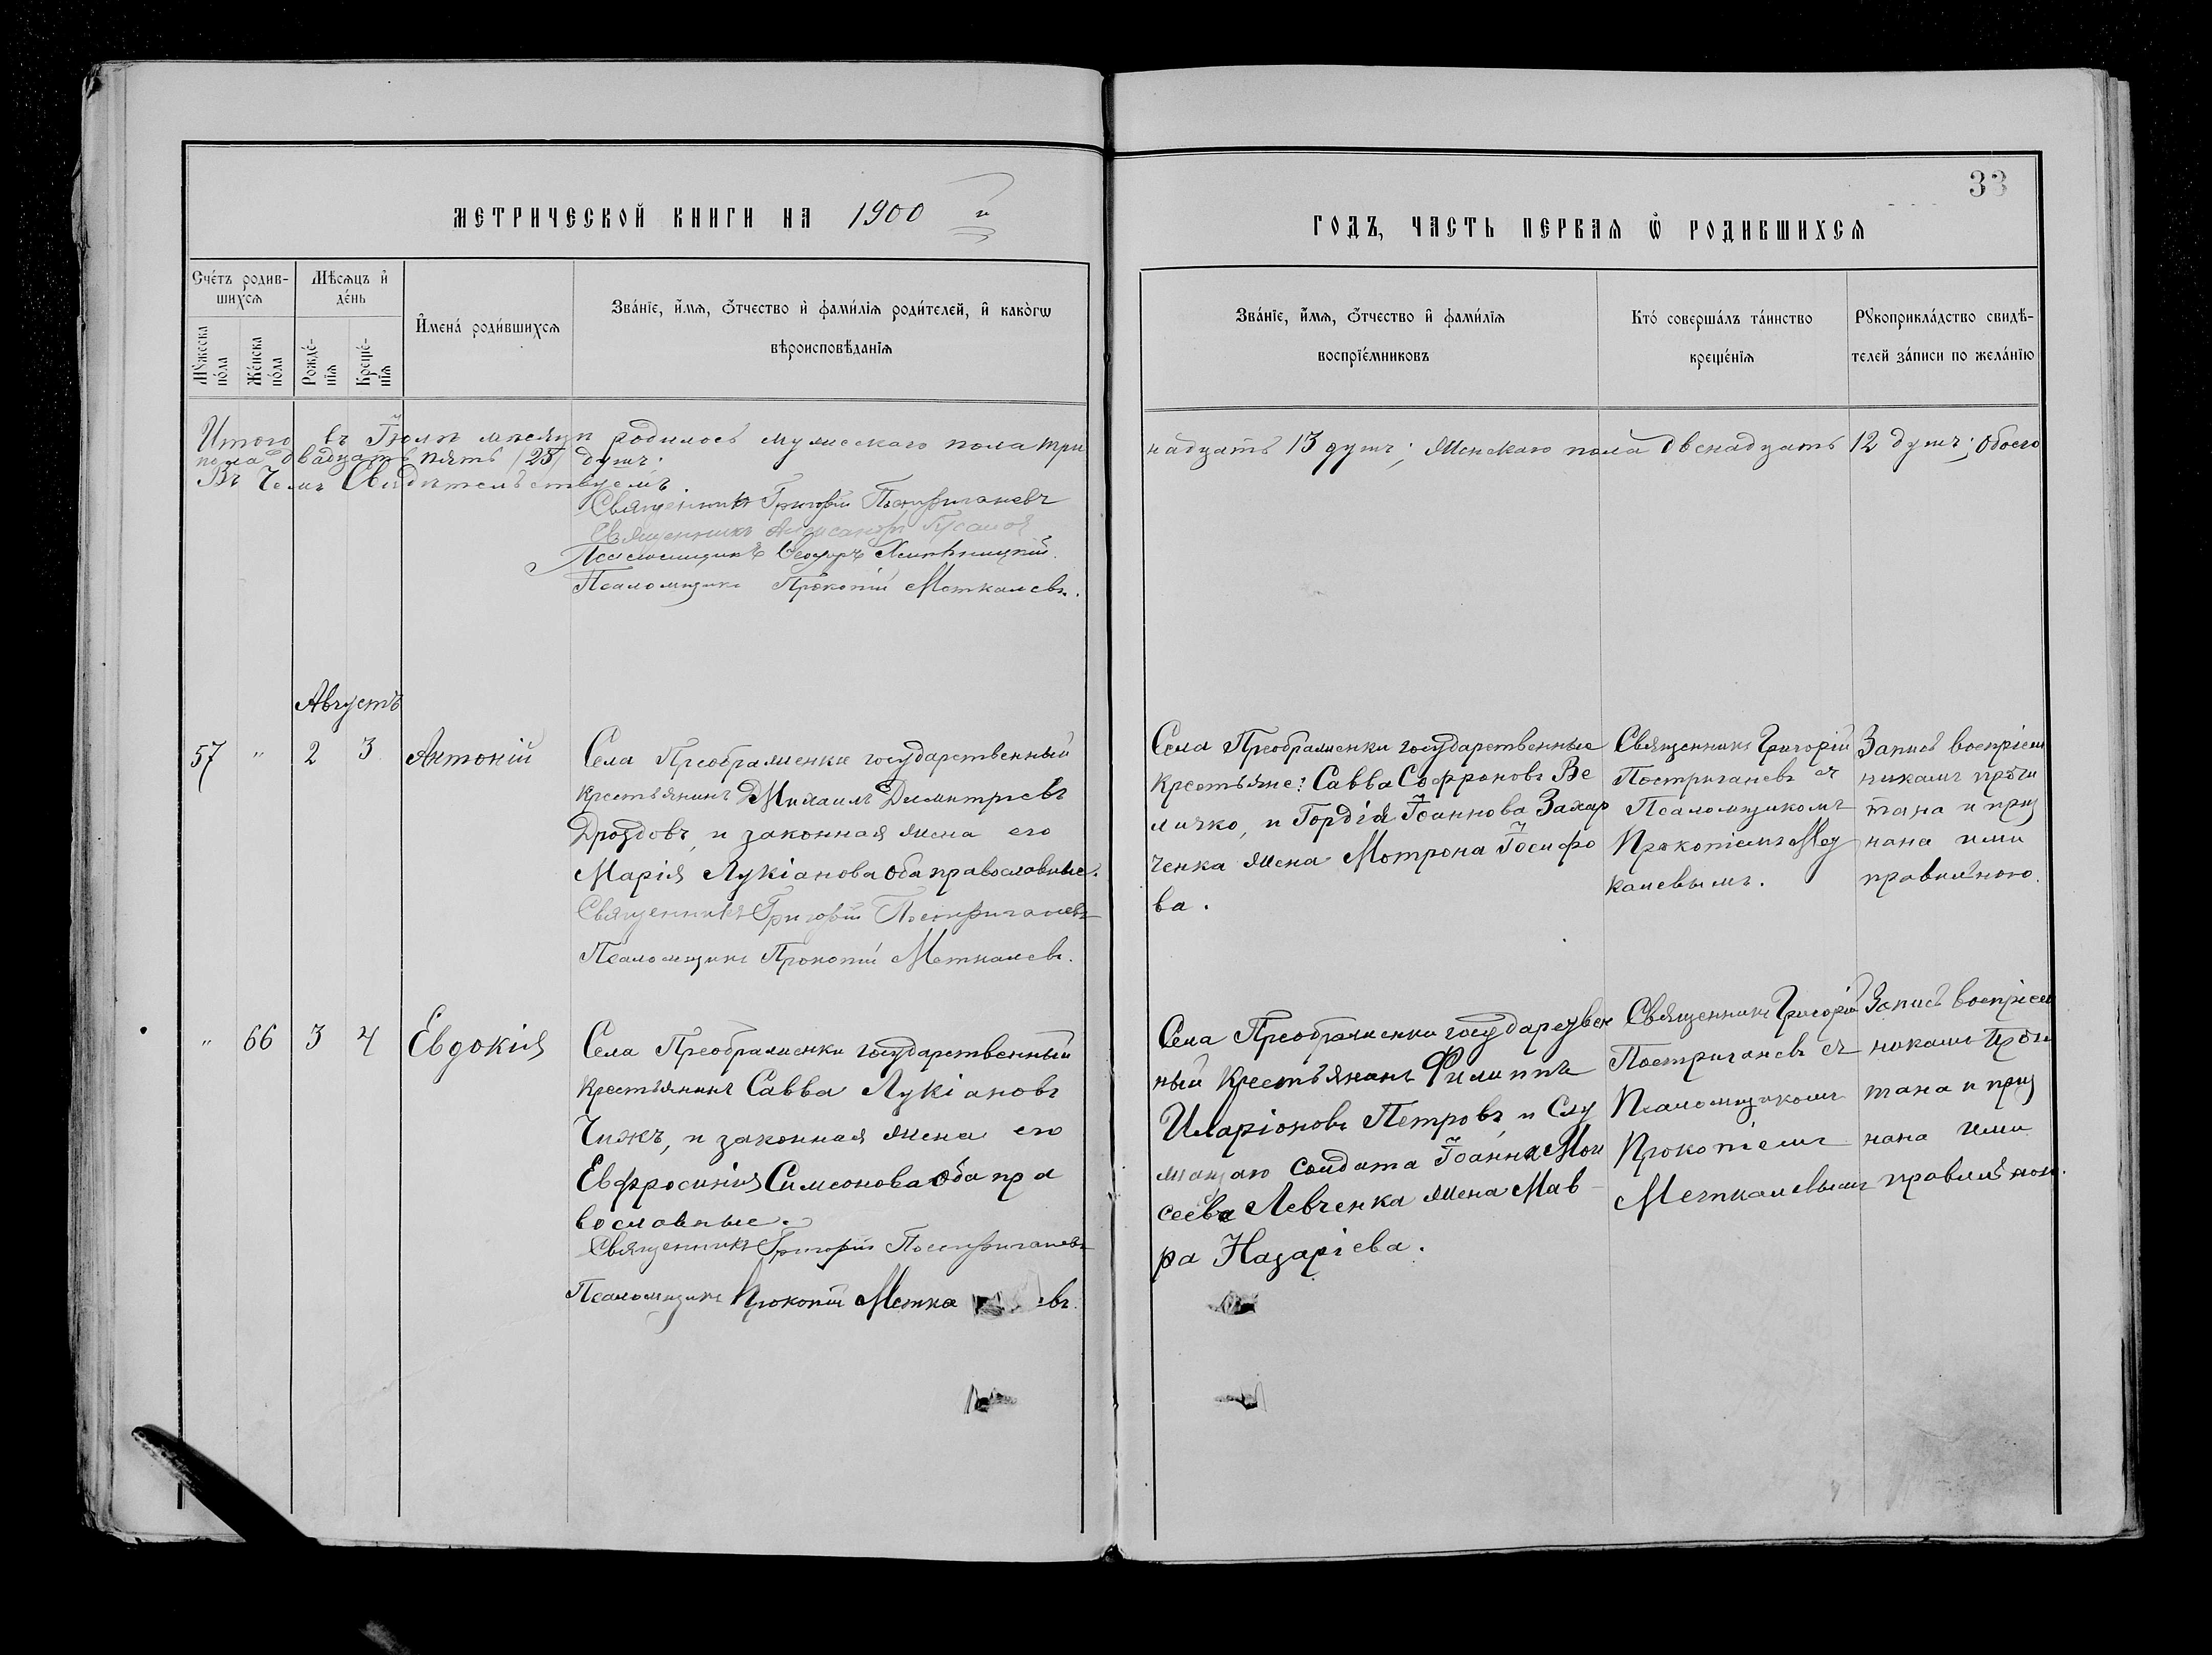 33
МЕТРИЧЕСКОЙ КНИГИ НА 1900 й
ГОДЪ, ЧАСТЬ ПЕРВАЯ Ѿ РОДИВШИХСЯ
Счетъ родив-
шихся
Мужеска
пола
Женска
пола
Мѣсяцъ и
день
Рожде-
нія
Креще-
нія
Имена родившихся
Званіе, имя, отчество и фамилія родителей, и какогѡ
вѣроисповѣданія
Званіе, имя, отчество и фамилія
воспріемниковъ
Кто совершалъ таинство
крещенія
Рукоприкладство свидѣ-
телей записи по желанію
Итого въ Іюлѣ мѣсяцѣ родилось мужескаго пола три
надцать 13 душъ; женскаго пола двенадцать 12 душъ; обоего
пола двадцать пять /25/ душъ;
Въ чемъ Свидѣтельствуемъ
Священникъ Григорій Постригачевъ
Священникъ
Псаломщикъ Ѳеодоръ
Псаломщикъ Прокопій Меткалевъ.
Августъ
57 " 2 3 Антоній
Села Преображенки государственный
крестьянинъ Михаилъ Димитріевъ
Дроздовъ, и законная жена его
Марія Лукіанова оба православные.
Священникъ Григорій Постригачевъ
Псаломщикъ Прокопій Меткалевъ.
Села Преображенки государственные
крестьяне: Савва Софроновъ Ве
личко, и Гордія Іоаннова Захар
ченка жена Мотрона Іосифо
ва.
Священникъ Григорій
Постригачевъ съ
Псаломщикомъ
Прокопіемъ Мед
калевымъ.
Запись воспріем
никамъ прочи
тана и приз
нана ими
правильною.
" 66 3 4 Евдокия
Села Преображенки государственный
крестьянинъ Савва Лукіановъ
Чижъ, и законная жена его
Евфросиния Симеонова оба пра
вославные.
Священникъ Григорій Постригачевъ
Псаломщикъ Прокопій Метка евъ.
Села Преображенки государствен
ный крестьянинъ Филиппъ
Иларіоновъ Петровъ, и Слу
жащаго солдата Іоанна Мои
сеева Левченка жена Мав
ра Назаріева.
Священникъ Григорій
Постригачевъ съ
Псаломщикомъ
Прокопіемъ
Меткалевымъ
Запись воспріем
никамъ прочи
тана и приз
нана ими
правильною.